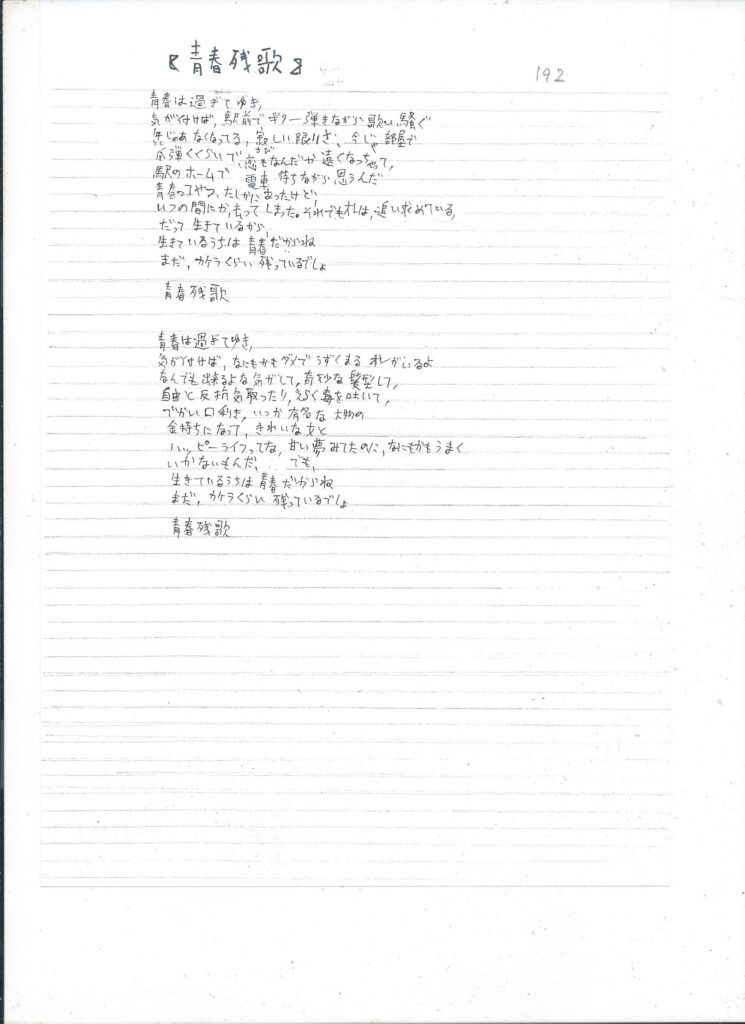 『青春残歌』
192
青春は過ぎてゆき,
気が付けば,駅前でギター弾きながら歌い騒ぐ
気じゃあなくなってる,寂しい限りさ、今じゃ部屋で
さび
爪弾くくらいで,恋もなんだか遠くなっちゃって,
駅のホームで 電車 待ちながら思うんだ
青春ってやつ,たしかにあったけど,
いつの間にか,去ってしまった。それでもオレは,追い求めている,
だって生きているから,
生きているうちは青春だからね
まだ,カケラくらい残っているでしょ
青春残歌
青春は過ぎてゆき,
気が付けば,なにもかもダメでうずくまるオレがいるよ
なんでも出来るよな気がして,奇妙な髪型して,
自由と反抗気取ったり,えらく毒を吐いて,
でかい口利き,いつか有名な大物の
金持ちになって,きれいな女と
ハッピーライフってな,甘い夢みてたのに,なにもかもうまく
いかないもんだ、でも,
生きているうちは青春だからね
まだ,カケラくらい残っているでしょ
青春残歌